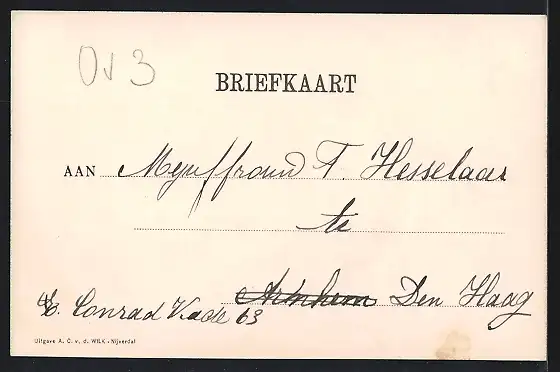 Ov 3
BRIEFKAART
AAN Mejuffrouw T. Hesselaar
te
Arnhem Den Haag
C. Conrad Kade 63
Uitgave A. C. v. d. WILK - Nijverdal